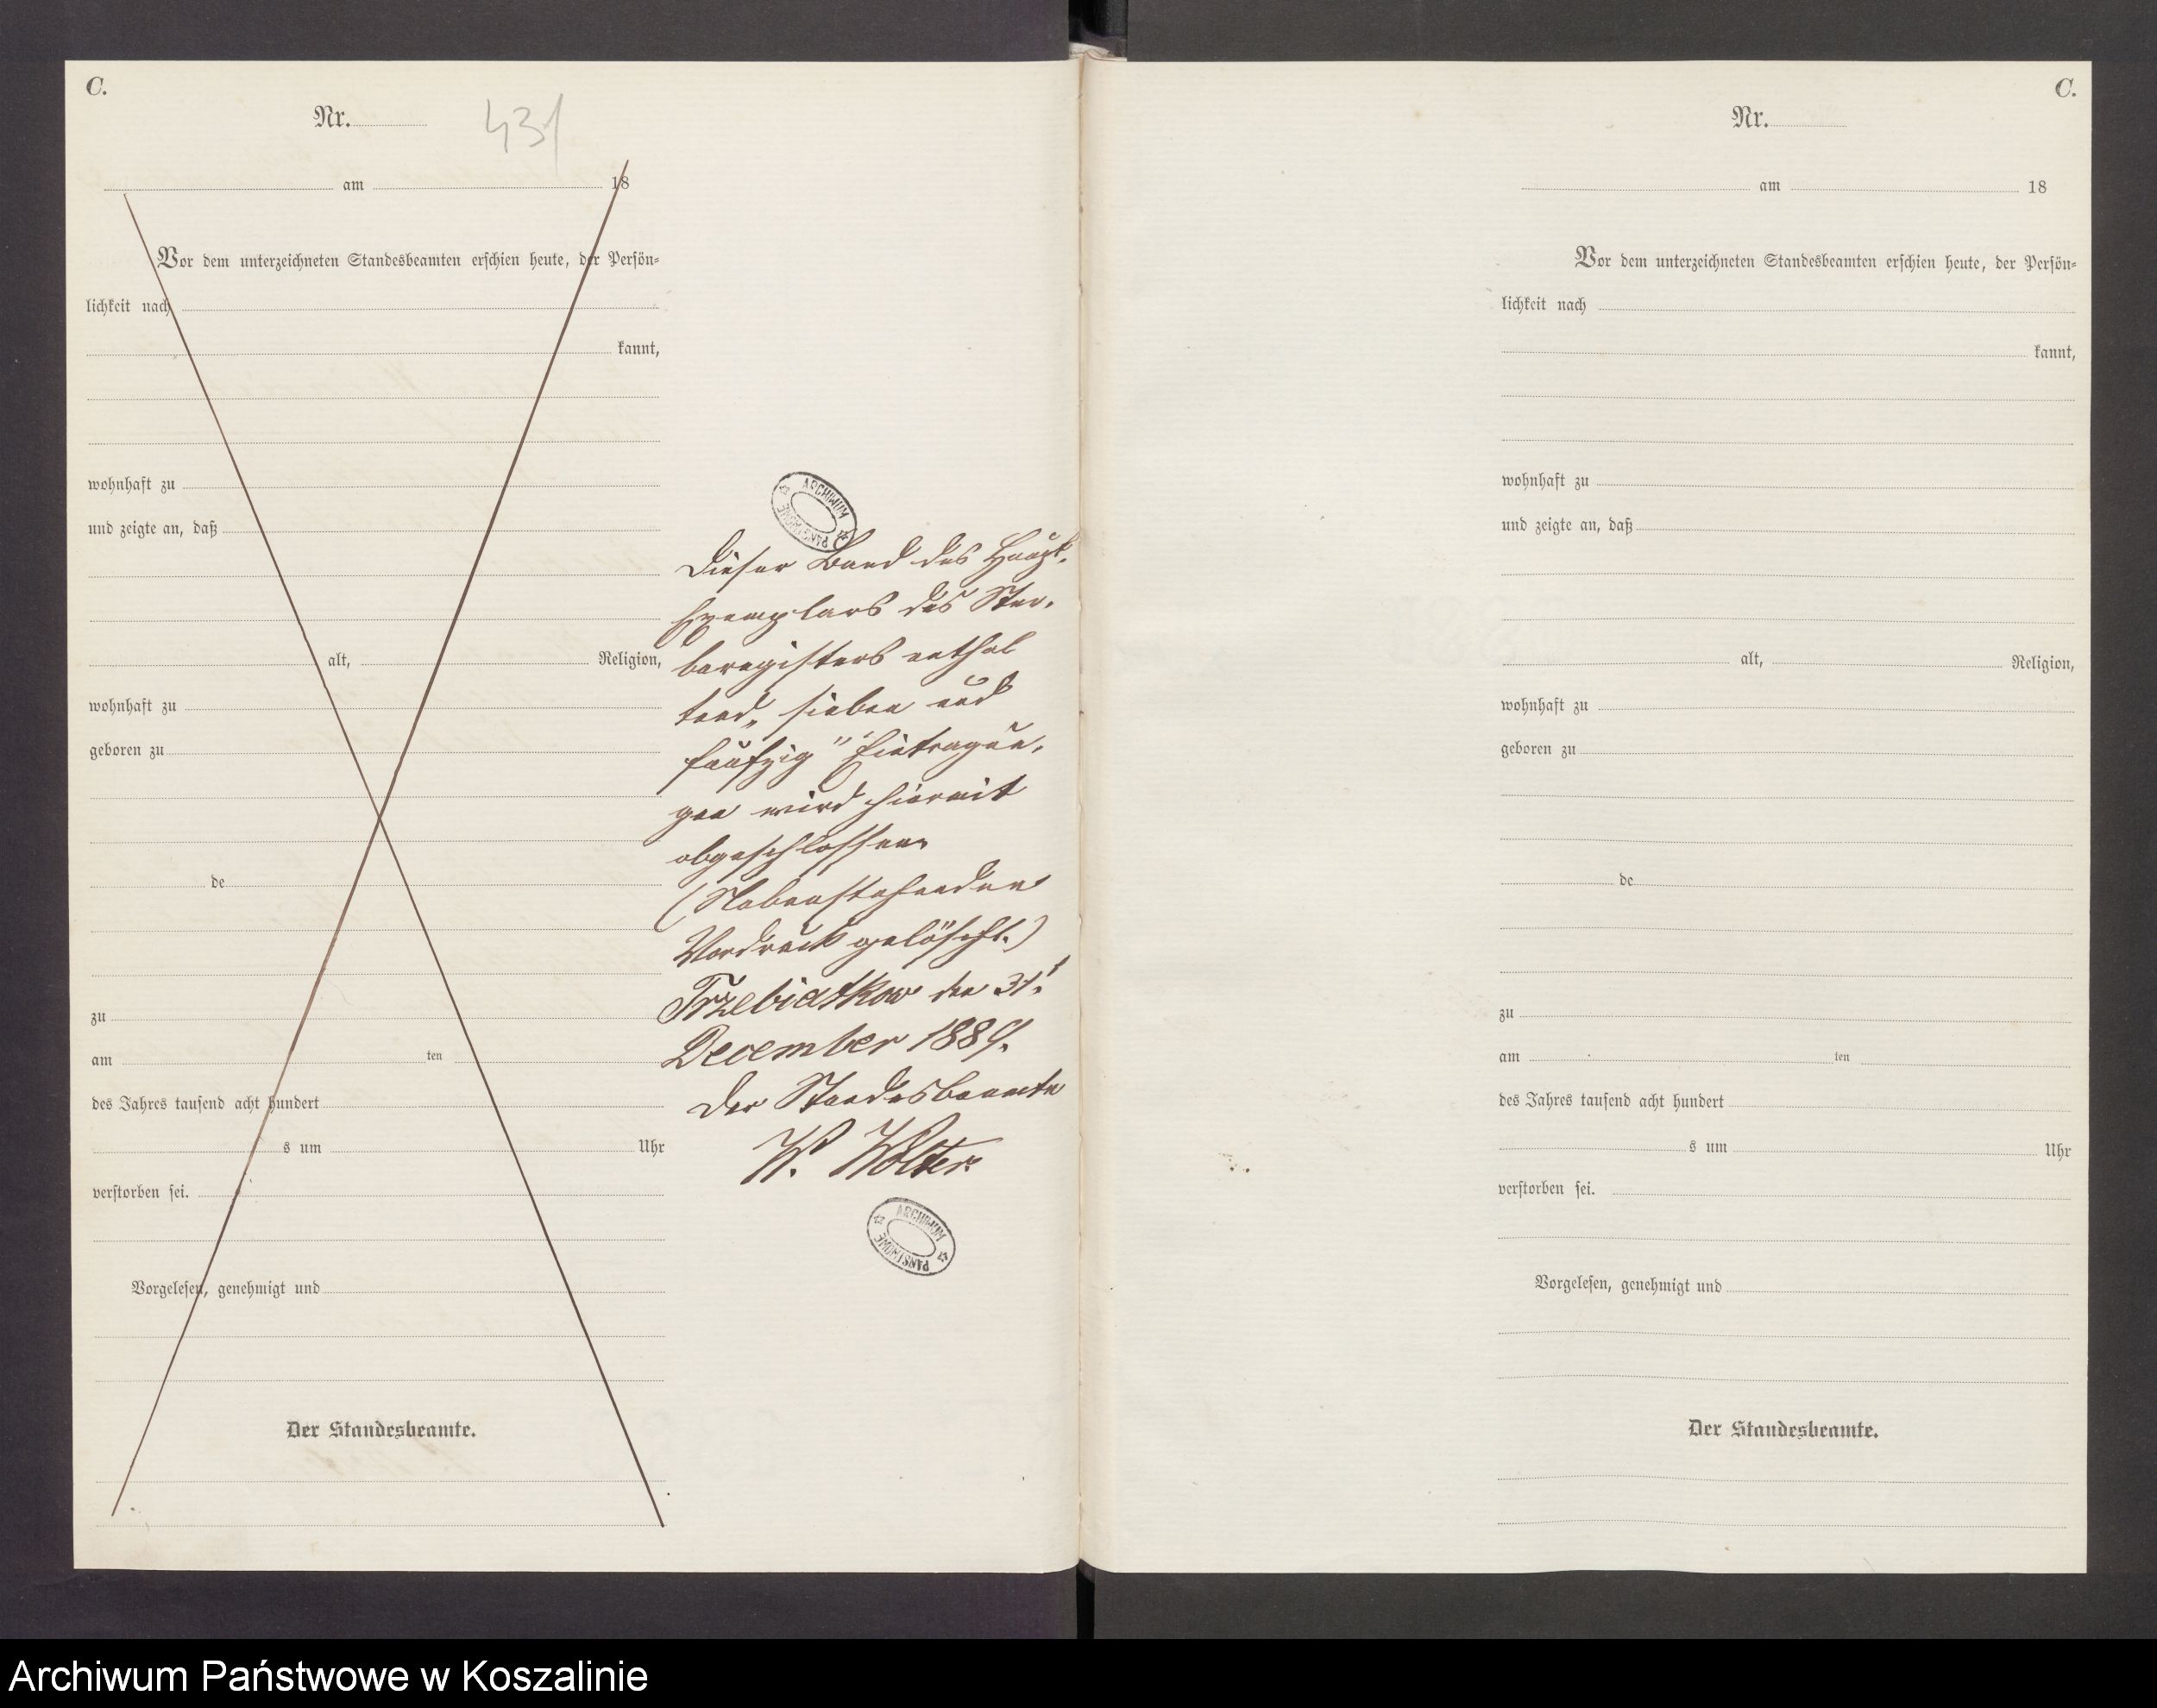 C.
Nr.
431
am 18
Vor dem unterzeichneten Standesbeamten erschien heute, der Persön-
lichkeit nach
kannt,
wohnhaft zu
und zeigte an, daß
alt, Religion,
wohnhaft zu
geboren zu
de
zu
am ten
des Jahres tausend acht hundert
s um Uhr
verstorben sei.
Vorgelesen, genehmigt und
Der Standesbeamte.
ARCHIWUM
PAŃSTWOWE
Dieser Band des Haupt-
Exemplars des Ster-
beregisters enthal
tend „sieben und
fünfzig" Eintragun-
gen wird hiermit
abgeschlossen
(Nebenstehenden
Vordruck gelöscht.)
Trzebiatkow den 31t
December 1889.
Der Standesbeamte
W. Wolter.
ARCHIWUM
PAŃSTWOWE
C.
Nr.
am 18
Vor dem unterzeichneten Standesbeamten erschien heute, der Persön-
lichkeit nach
kannt,
wohnhaft zu
und zeigte an, daß
alt, Religion,
wohnhaft zu
geboren zu
de
zu
am ten
des Jahres tausend acht hundert
s um Uhr
verstorben sei.
Vorgelesen, genehmigt und
Der Standesbeamte.
Archiwum Państwowe w Koszalinie